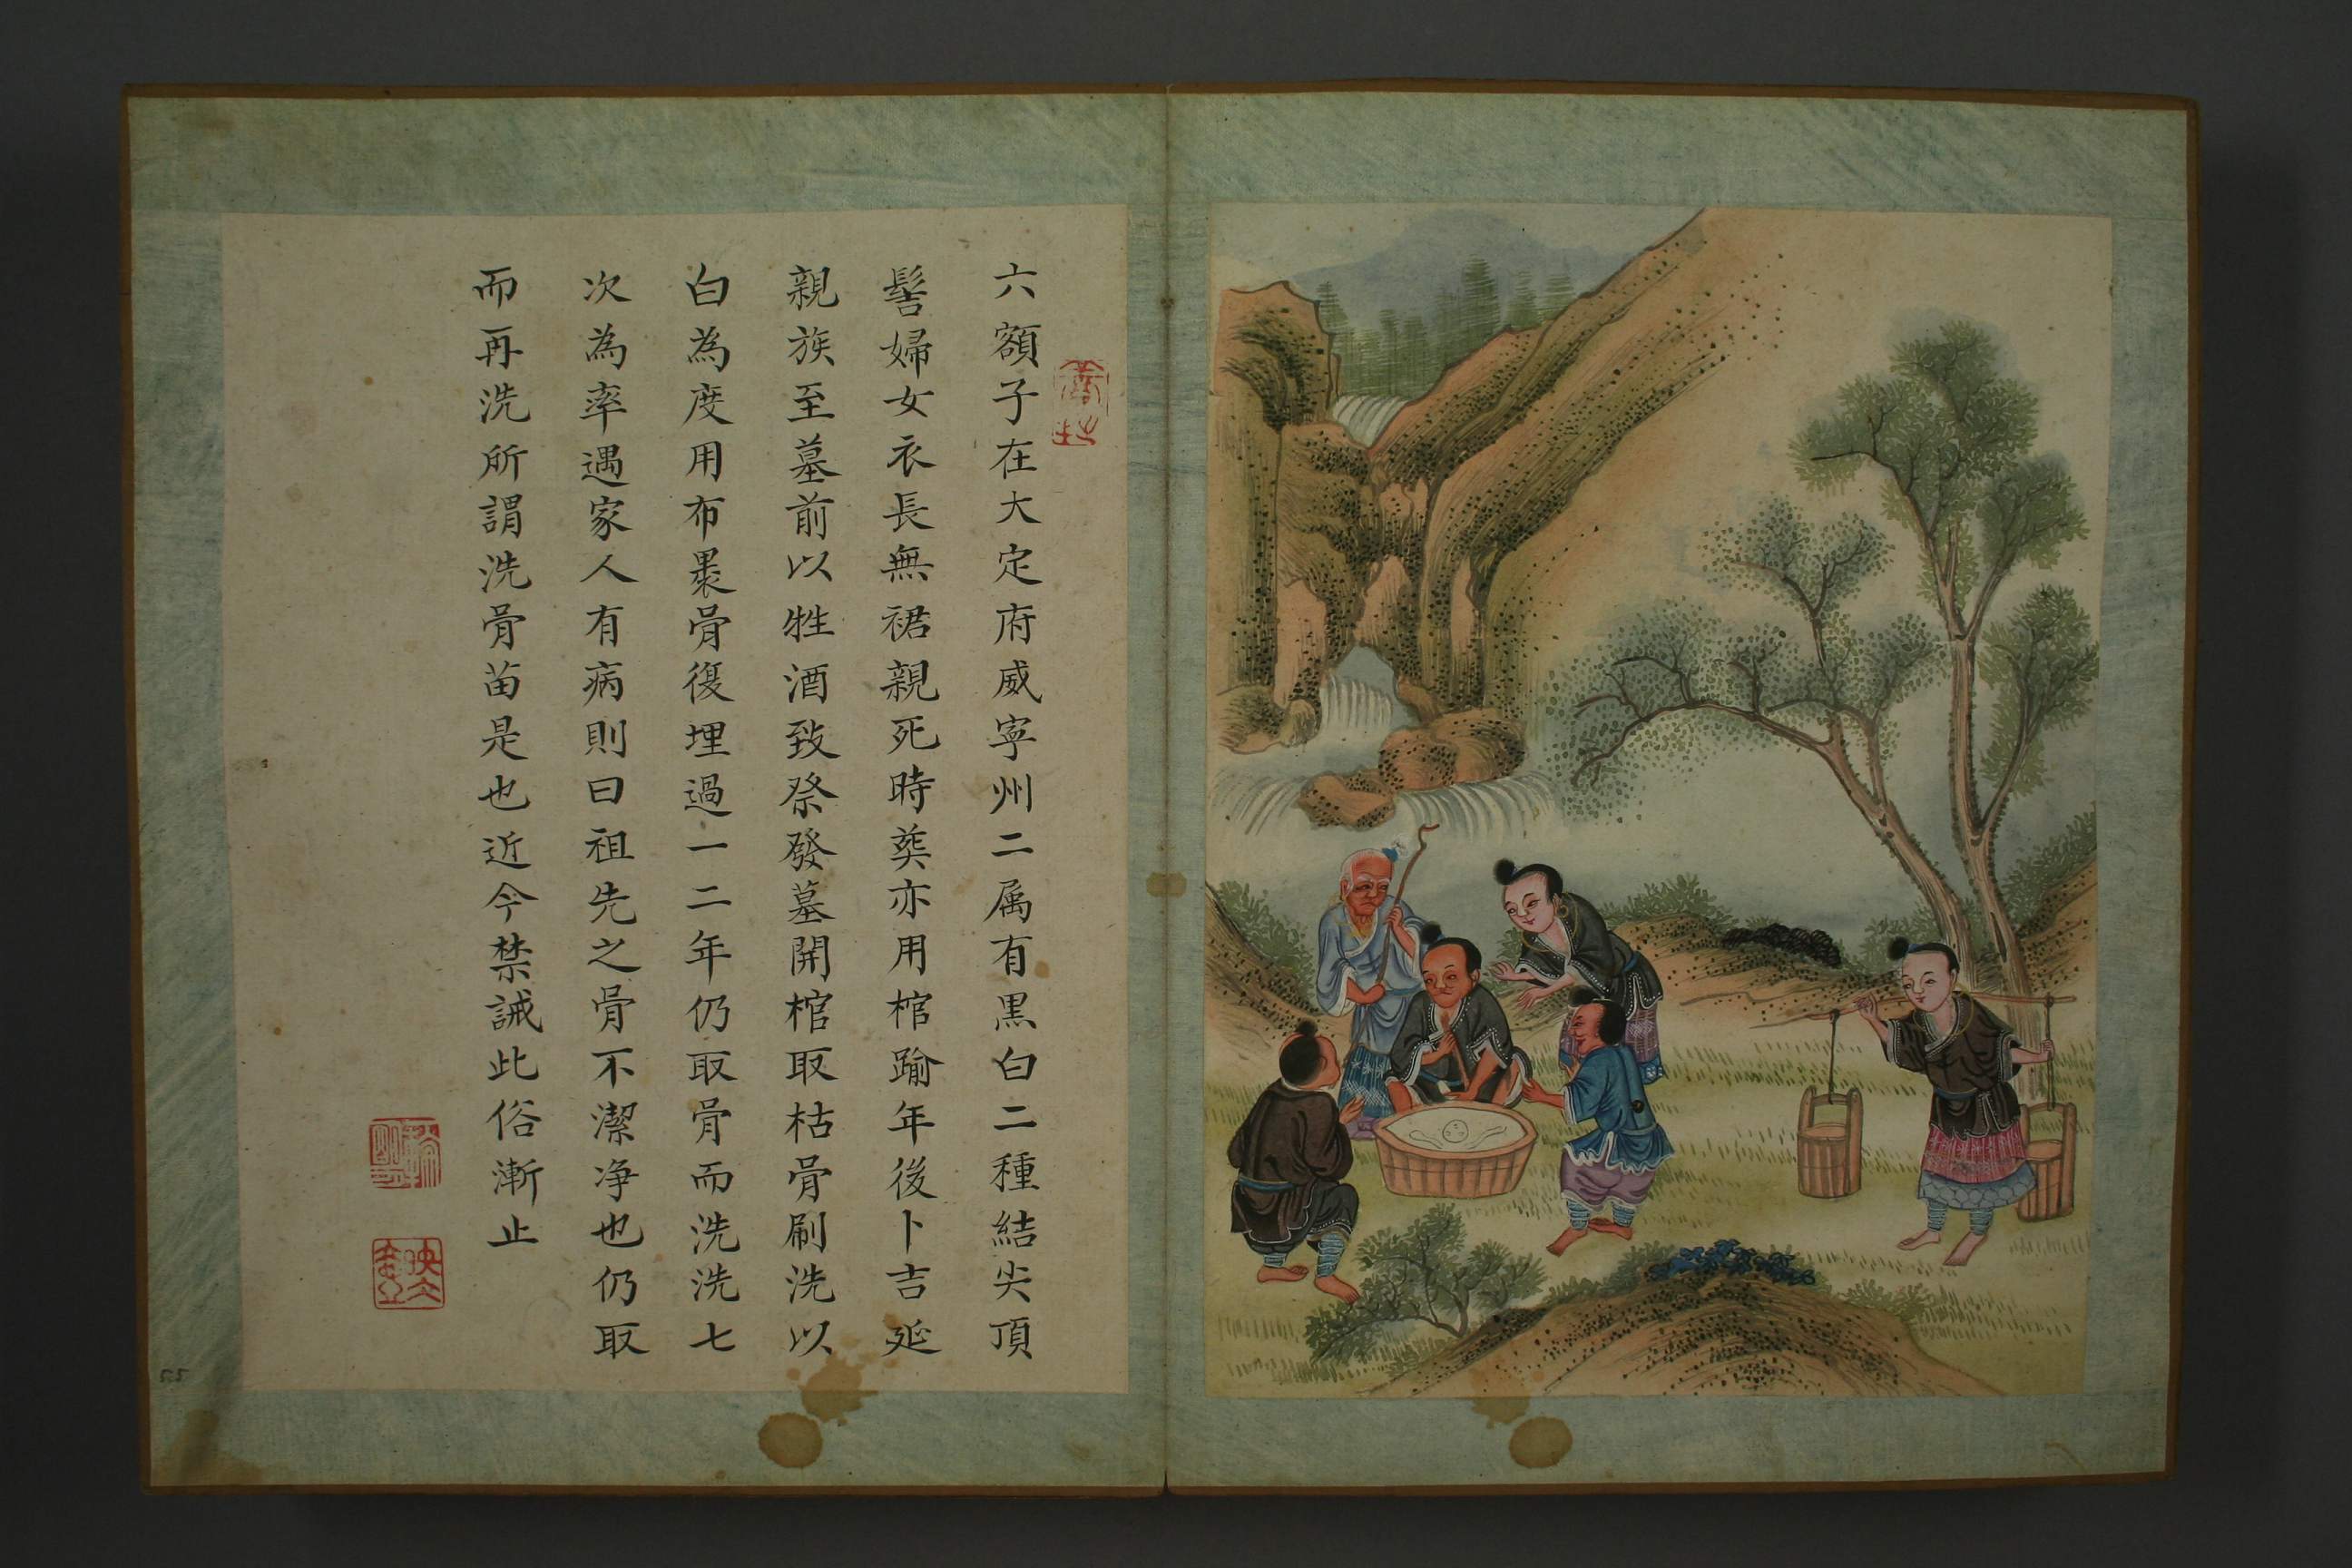 六額子在大定府威寧州二属有黒白二種結尖頂
髻婦女衣長無裙親死時葬亦用棺踰年後卜吉延
親族至墓前以牲酒致祭發墓開棺取枯骨刷洗以
白為度用布褁骨復埋過一二年仍取骨而洗洗七
次為率遇家人有病則曰祖先之骨不潔净也仍取
而再洗所謂洗骨苗是也近今禁誡此俗漸止